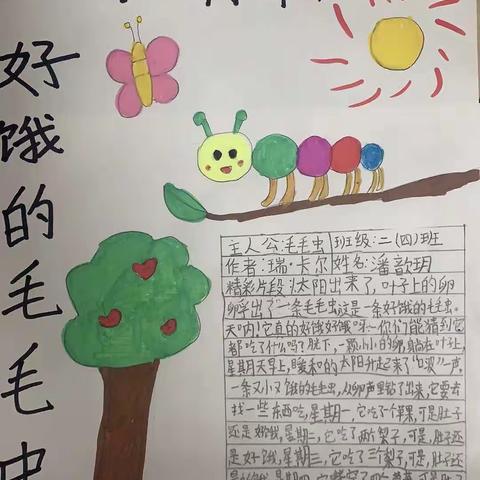 好饿的毛毛虫
主人公:毛毛虫 班级:二(四)班
作者:瑞·卡尔 姓名:潘歆玥
精彩片段:太阳出来了,叶子上的卵
孵出了一条毛毛虫这是一条好饿的毛毛虫。
天呐!它真的好饿好饿呀~你们能猜到它
都吃了什么吗?腕下,一颗小小的卵,躺在叶子上,
星期天早上,暖和的太阳升起来了"啵"一声,
一条又小又饿的毛毛虫,从卵声里钻了出来,它要去
找一些东西吃,星期一,它吃了个苹果,可是肚子
还是好饿,星期二,它吃了两个梨子,可是,肚子还
是好饿,星期三,它吃了三个梨子,可是,肚子